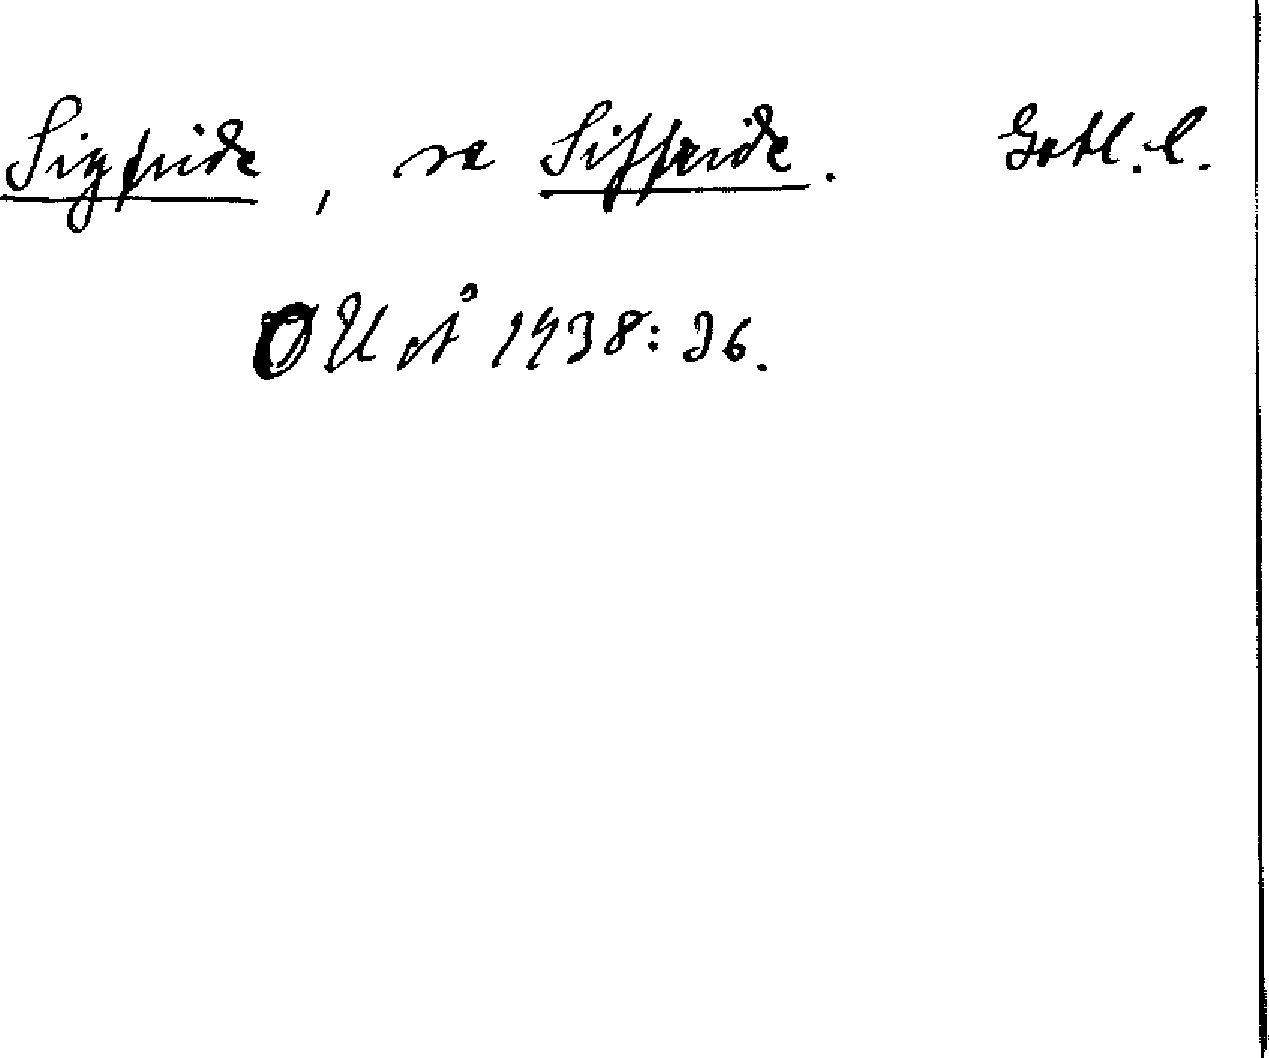 Sigfride, se Siffride. Gotl. l.
OUÅ 1938: 36.